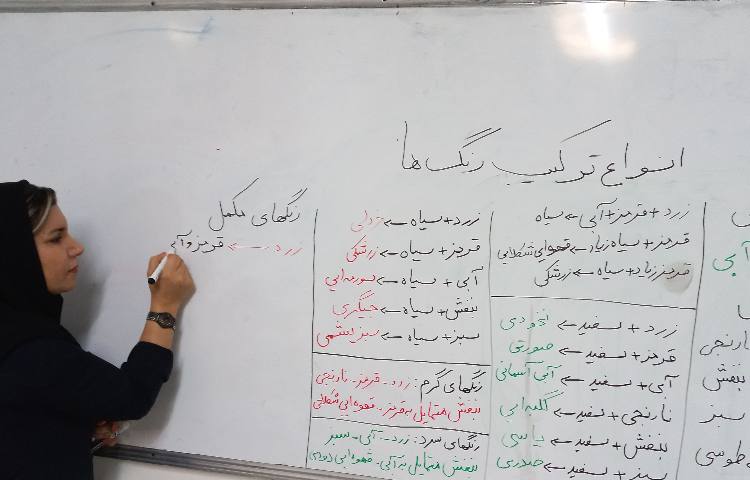 انواع ترکیب رنگ ها
آبی
نارنجی
بنفش
سبز
طوسی
زرد + قرمز + آبی ← سیاه
قرمز + سیاه زیاد ← قهوه‌ای شکلاتی
قرمز زیاد + سیاه ← زرشکی
زرد + سفید ← نخودی
قرمز + سفید ← صورتی
آبی + سفید ← آبی آسمانی
نارنجی + سفید ← گلبه‌ایی
بنفش + سفید ← یاسی
سبز + سفید ←
زرد + سیاه ← خردلی
قرمز + سیاه ← زرشکی
آبی + سیاه ← سورمه‌ایی
بنفش + سیاه ← جیگری
سبز + سیاه ← سبز یشمی
رنگهای گرم: زرد - قرمز - نارنجی
بنفش متمایل به قرمز - قهوه‌ایی شکلاتی
رنگهای سرد: زرد - آبی - سبز
بنفش متمایل به آبی - قهوه‌ایی
رنگهای مکمل
زرد ← قرمز و آبی